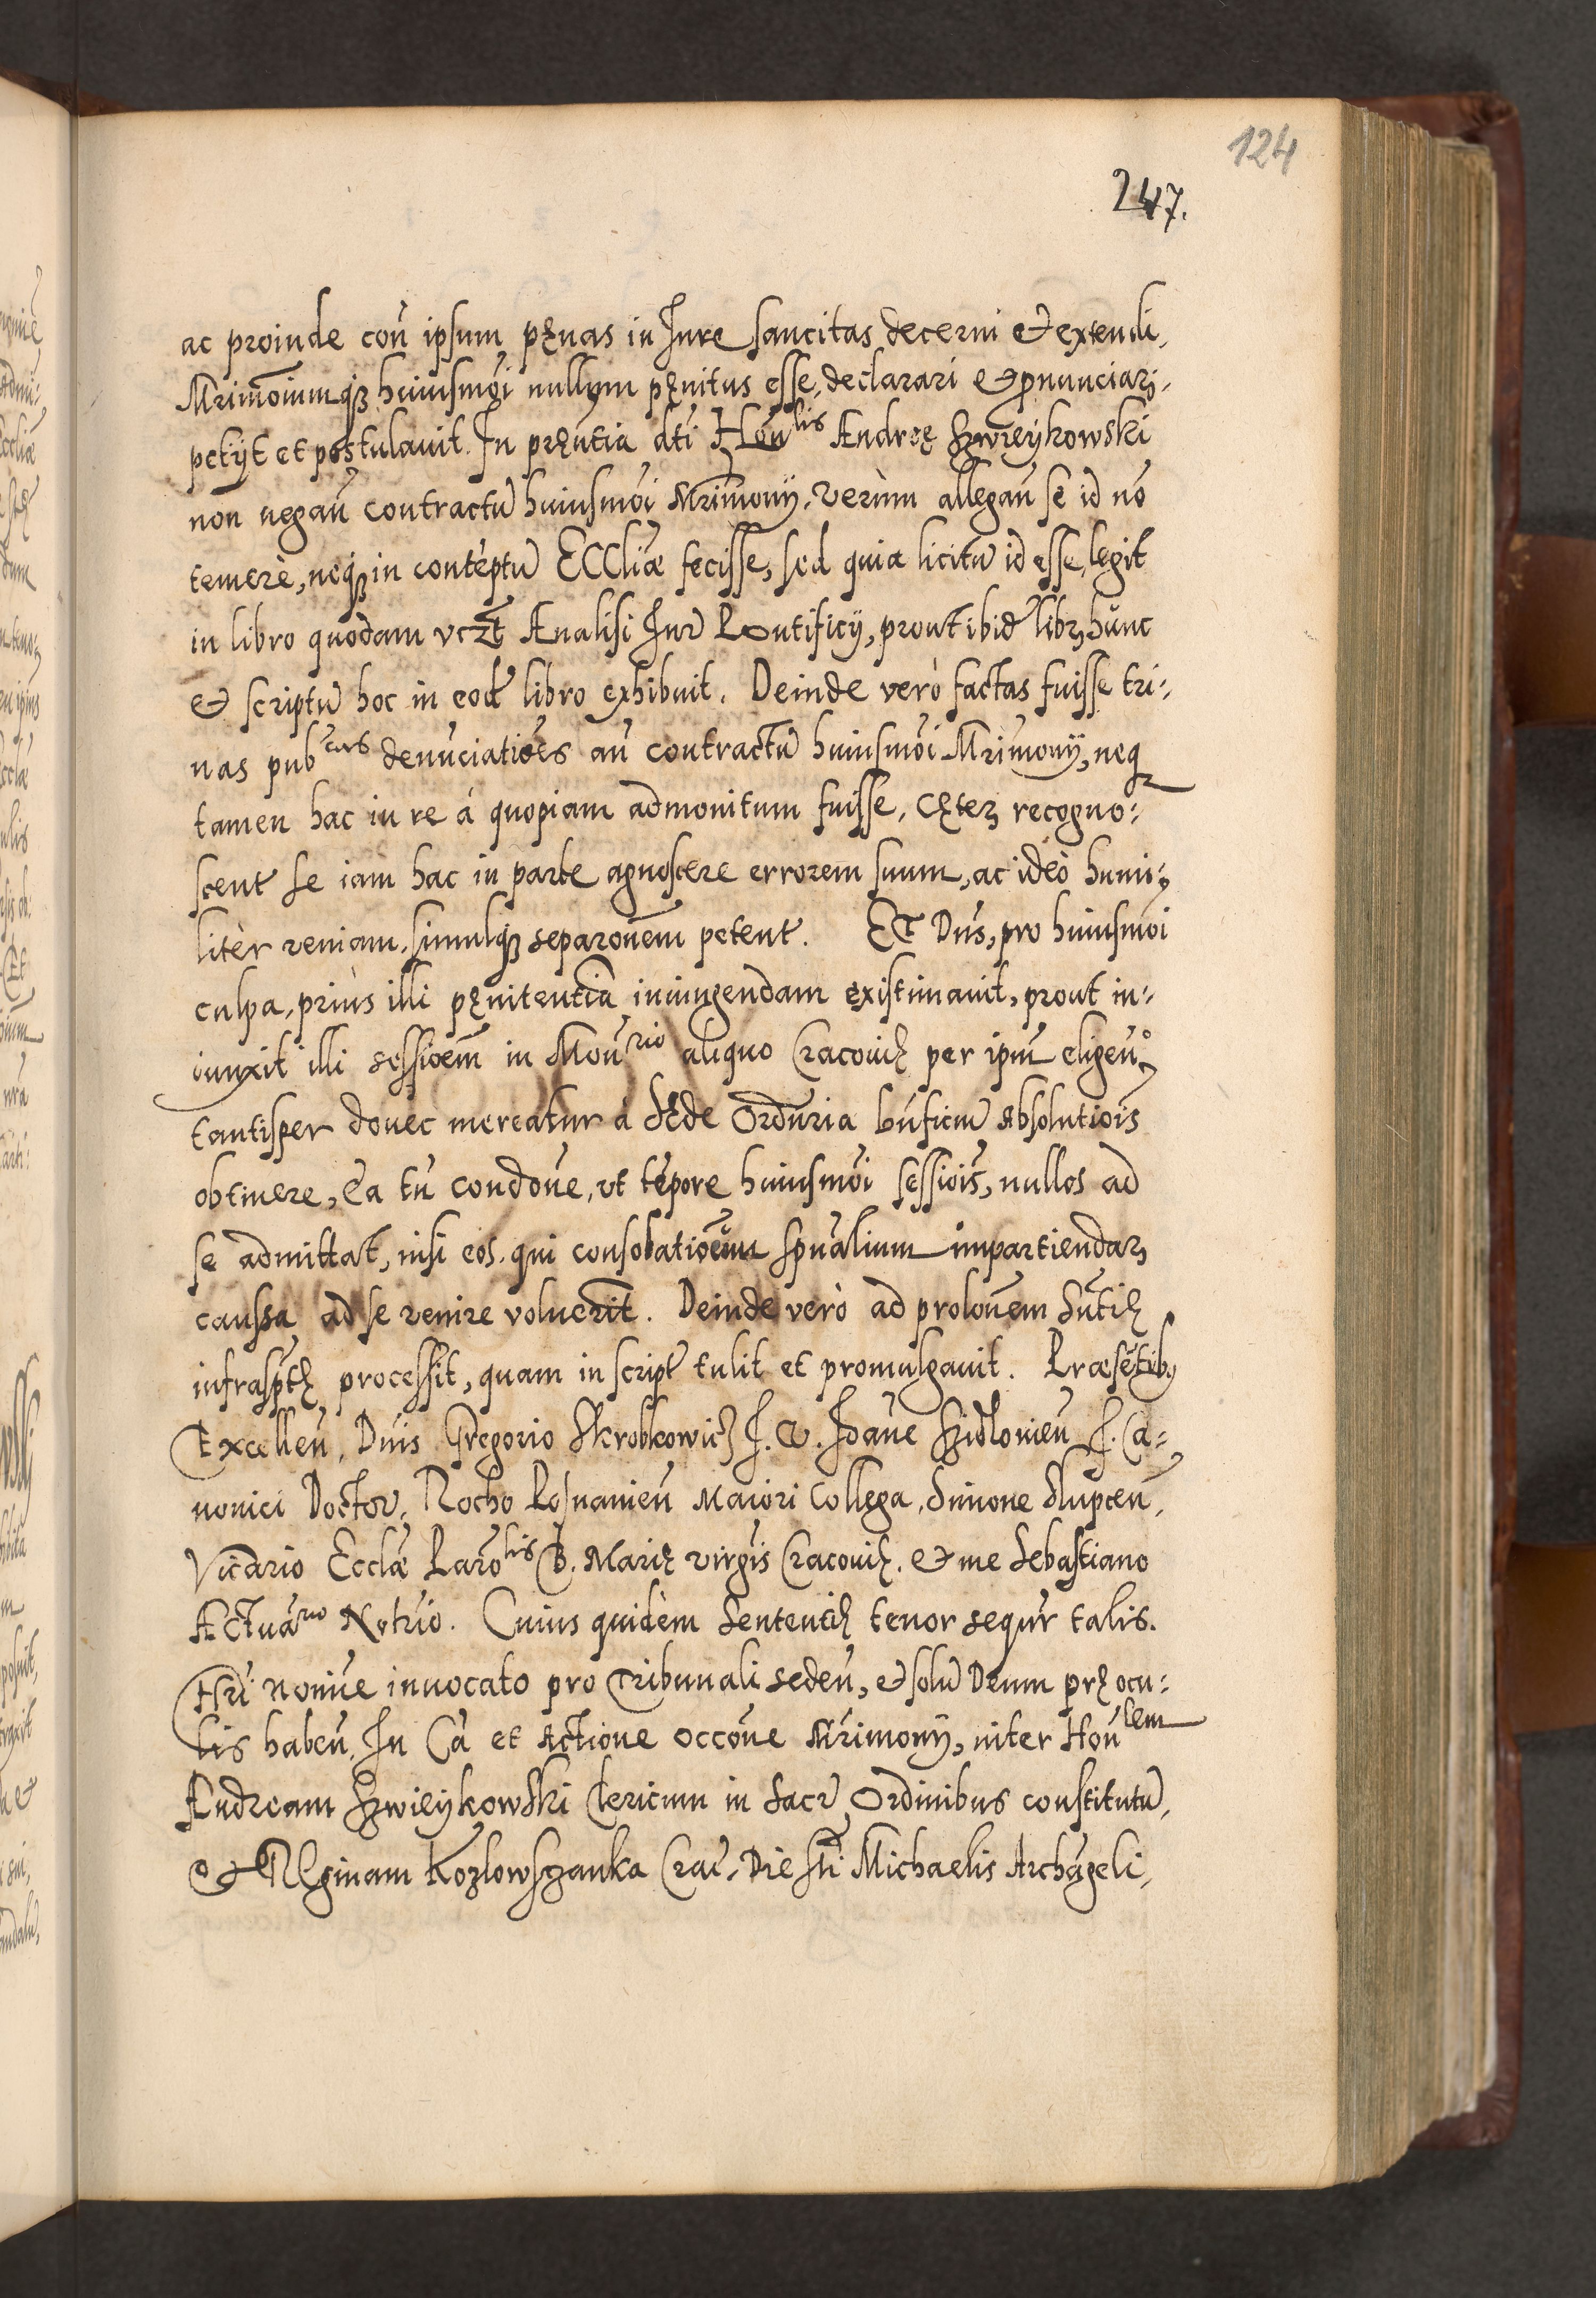 124
247.
ac proinde coñ ipsum pęnas in Jure sancitas decerni et extendi,
Mrimoniumq₃ huiusmōi nullum pęnitus esse, declarari et pnunciari,
petijt et postulauit. In pręntia dti Hōnlis Andreę Szwieykowski
non negañ contractū huiusmōi Mrimonij, Verùm allegañ se id nō
temerè, neq₃ in contēptū ECCliæ fecisse, sed quia licitū id esse, legit
in libro quodam vczt Analisi Jur Pontificij, prout ibid libr hunc
et scriptū hoc in eod libro exhibuit. Deinde verò factas fuisse tri-
nas pubcas denūciatiōes añ contractū huiusmōi Mrimonij, neq₃
tamen hac in re à quopiam admonitum fuisse, Cęter recogno-
scent se iam hac in parte agnoscere errorem suum, ac ideò humi-
litèr veniam, simulq₃ separōnem petent. Et Dñs, pro huiusmōi
culpa, priùs illi pęnitentiā iniungendam existimauit, prout in-
iunxit illi sessiōem in Monrio aliquo Cracouię per ipm eligeño
tantisper donec mereatur à Sęde Ordnria bñficiū Absolutiōis
obtinere, Ea tñ condōne, vt tēpore huiusmōi sessiōis, nullos ad
se admittat, nisi eos, qui consolatiōum spūalium impartiendar
caussa ad se venire voluerit. Deinde verò ad prolōnem Sñtię
infrasptę processit, quam in script tulit et promulgauit. Præsētib₉
Excelleñ, Dnis Gregorio Skrobkowicz J. V. Joāne Szidlonieñ J. Ca-
nonici Doctor, Rocho Posnanieñ Maiori Collega, Simone Slupceñ,
Vicario Ecclæ Parōlis B. Marię Virgis Cracouię. et me Sebastiano
Actuārio Notrio. Cuius quidèm Sententię tenor sequr talis.
Xti nomine inuocato pro Tribunali sedeñ, et solū Deum prę ocu-
lis habeñ, In Cā et Actione occōne Mrimonij, inter Hoñlem
Andream Szwieykowski Clericum in Sacr Ordinibus constitutū,
et Reginam Kozlowszanka Crac. Die Sti Michaelis Archāgeli,